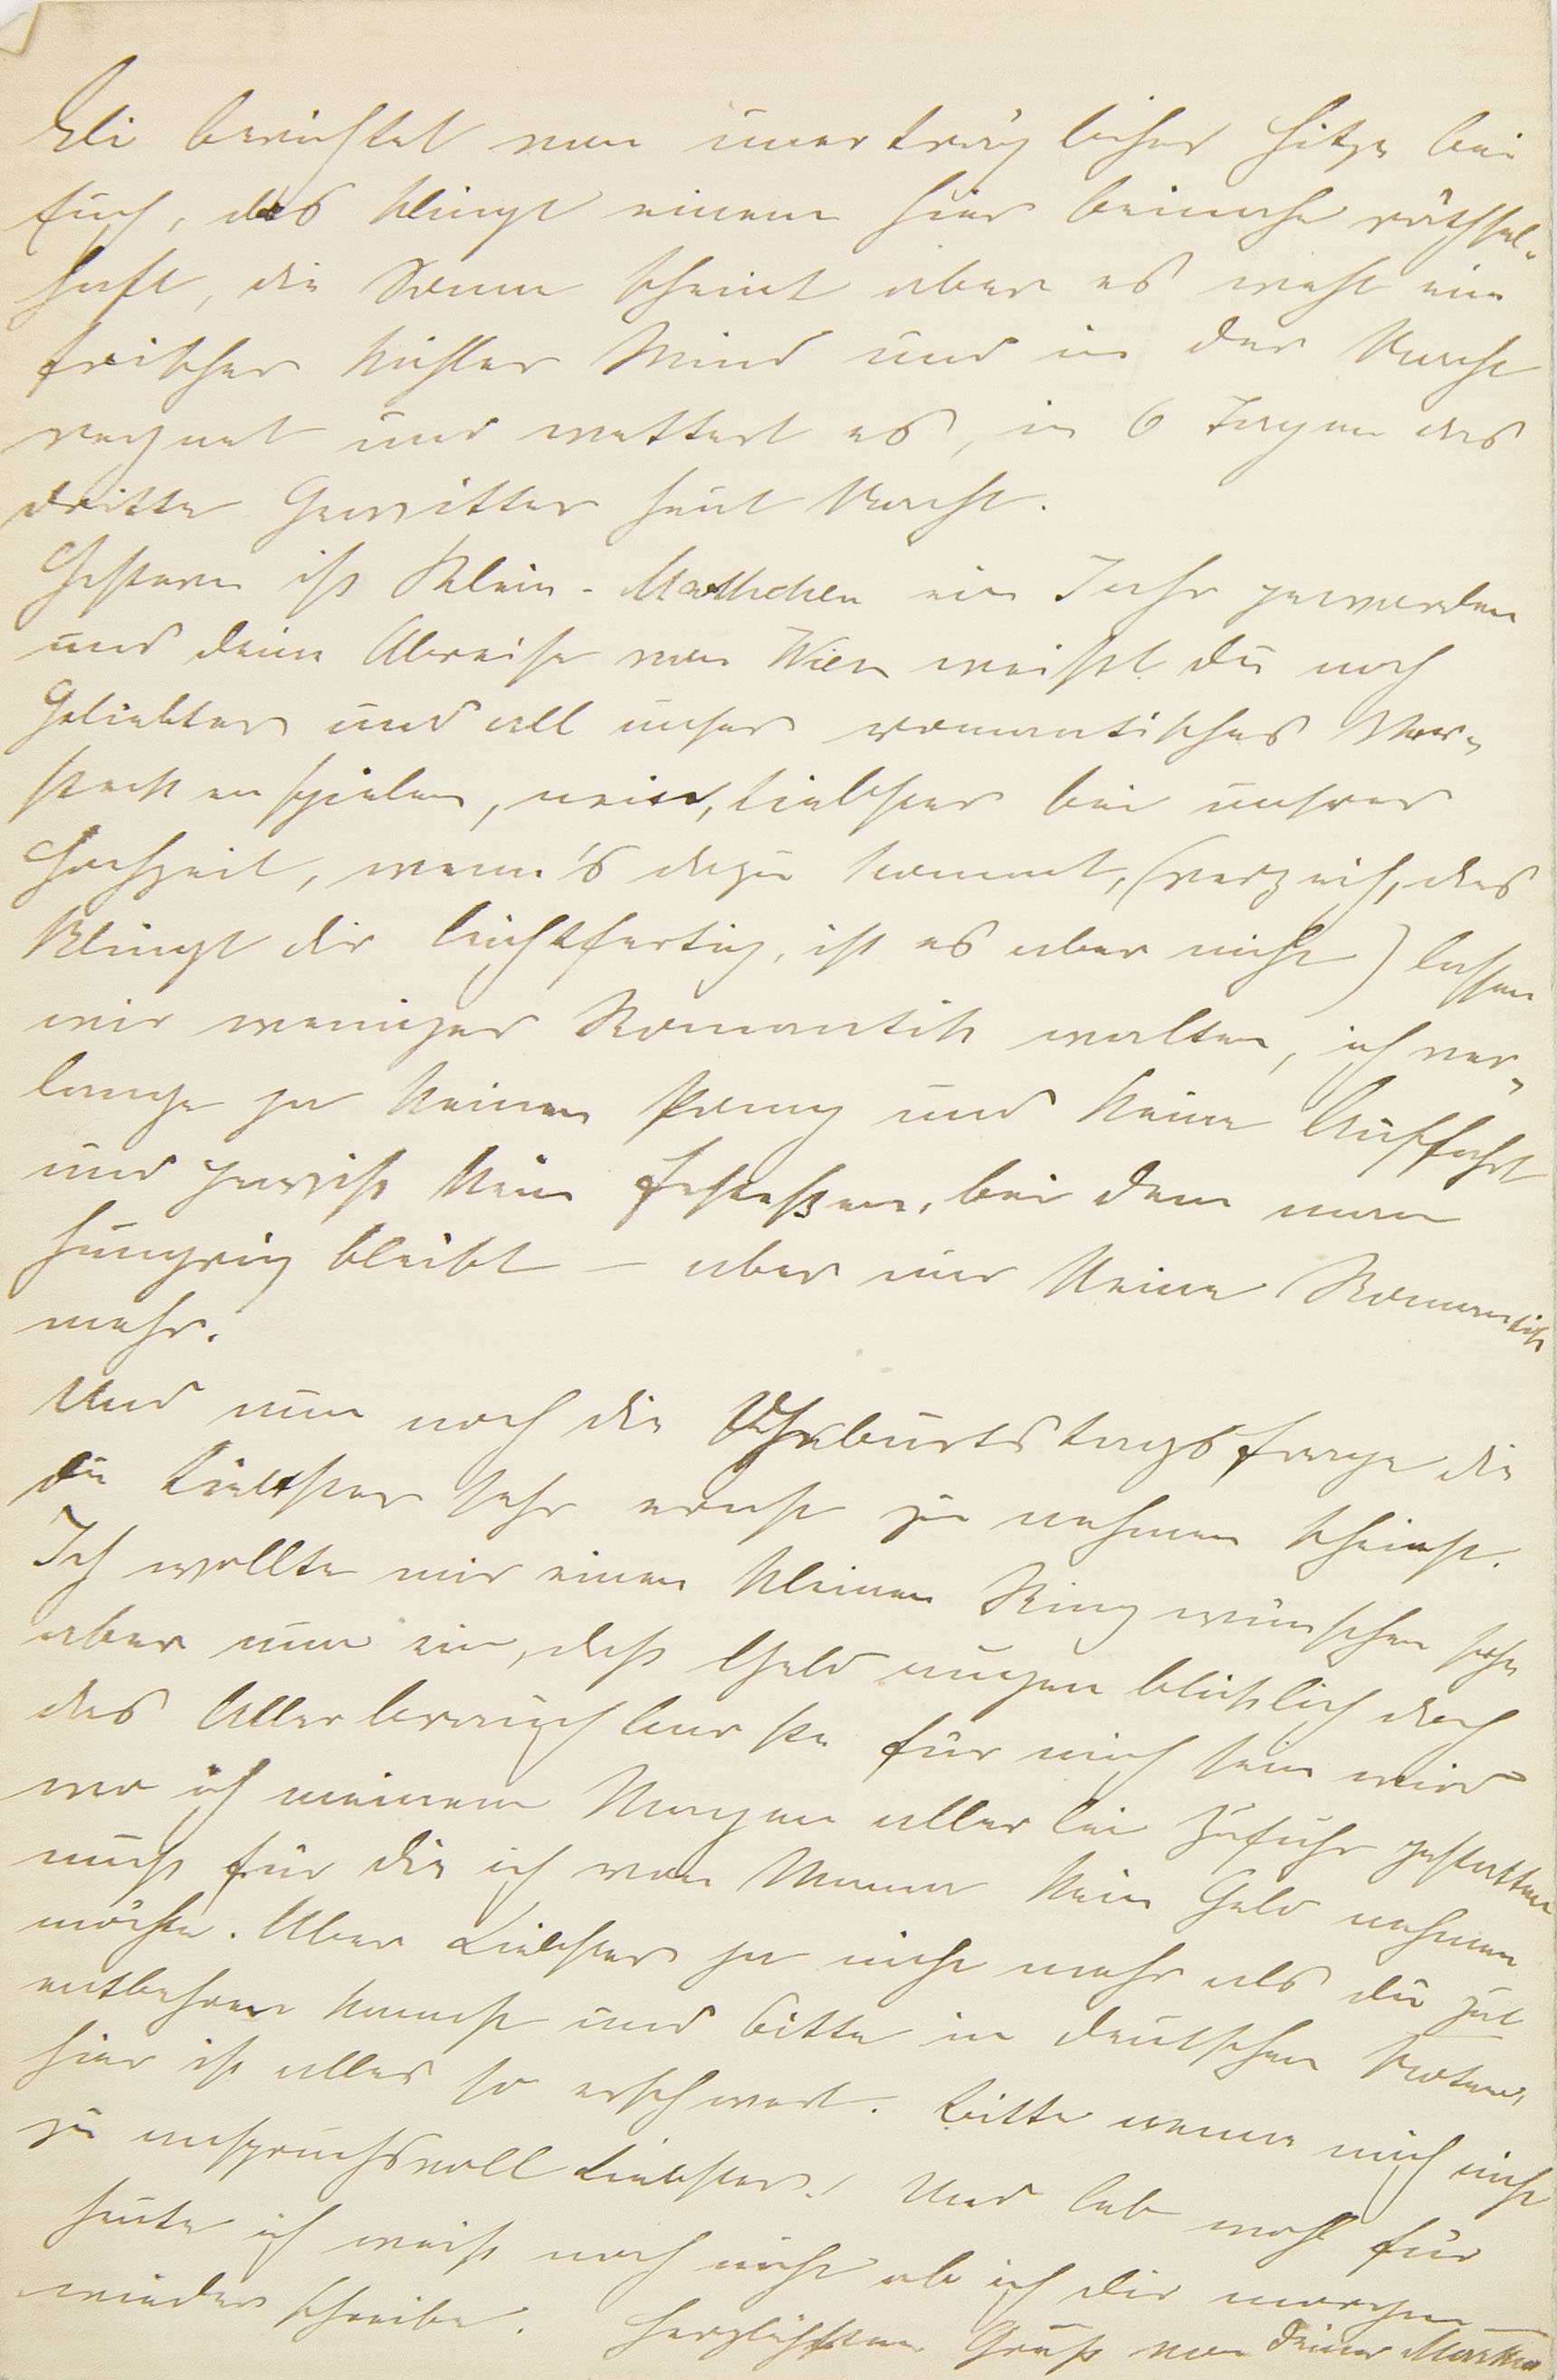 Eli berichtet von unerträglicher Hitze bei
Euch, das klingt einem hier beinahe räthsel-
haft, die Sonne scheint aber es weht ein
frischer kühler Wind und in der Nacht
regnet und wettert es, in 6 Tagen das
dritte Gewitter heut Nacht.
Gestern ist Klein-Mathchen ein Jahr geworden
und deine Abreise von Wien weißt du noch
Geliebter und all unser romantisches Ver-
steckenspielen, nein, Liebster bei unsrer
Hochzeit, wenn's dazu kommt, (verzeih, das
klingt dir leichtfertig, ist es aber nicht) lassen
wir weniger Romantik walten, ich ver-
lange ja keinen Pomp und keine Auffahrt
und gewiß kein Festessen, bei dem man
hungrig bleibt – aber nur keine Romantik
mehr.
Und nun noch die Geburtstagsfrage die
du Liebster sehr ernst zu nehmen scheinst.
Ich wollte mir einen kleinen Ring wünschen sehe
aber nun ein, daß Geld augenblicklich doch
das Allerbrauchbarste für mich sein wird
wo ich meinem Magen allerlei Zufuhr gestatten
muß für die ich von Mama kein Geld nehmen
möchte. Aber Liebster ja nicht mehr als du gut
entbehren kannst und bitte in deutschen Noten,
hier ist alles so erschwert. Bitte nenne mich nicht
zu anspruchsvoll Liebster! Und leb wohl für
heute ich weiß noch nicht ob ich dir morgen
wieder schreibe. Herzlichsten Gruß von deiner Martha